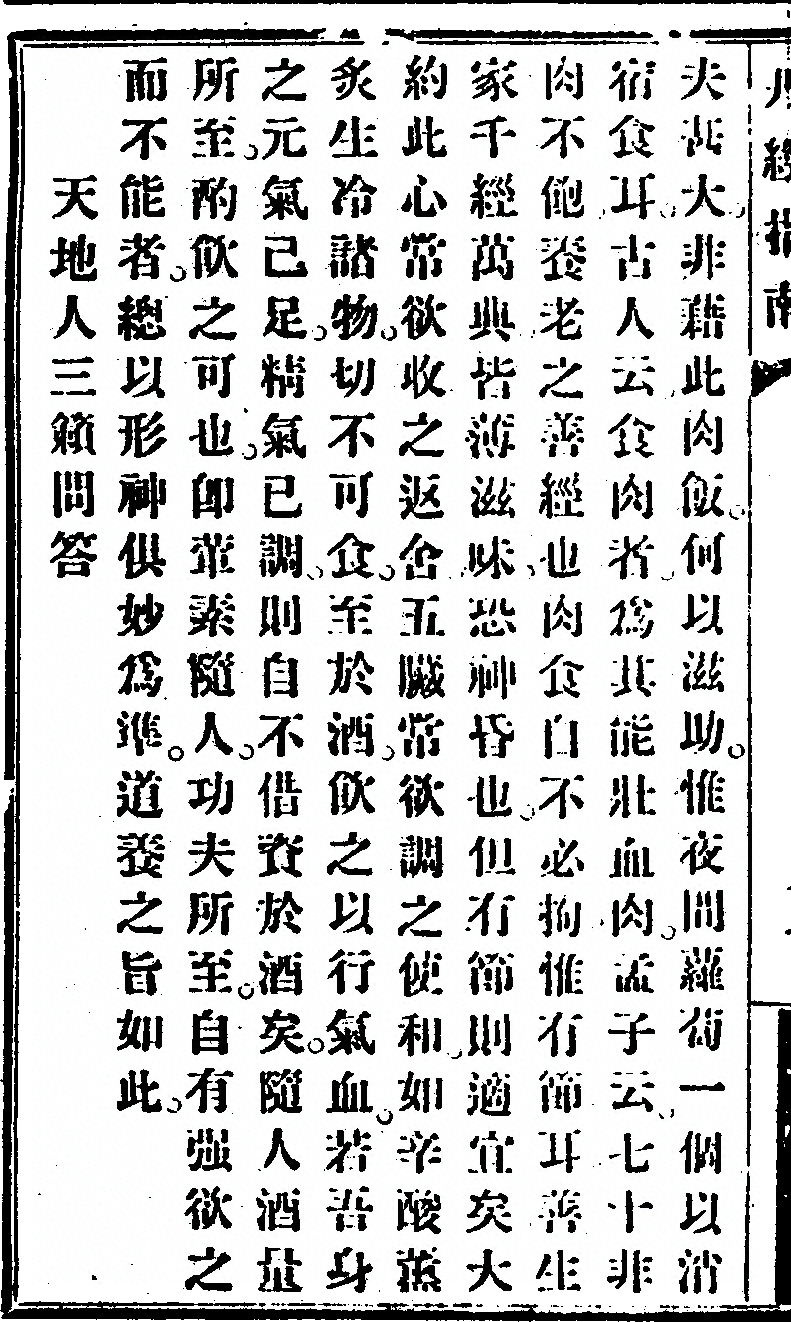 丹經指南
夫甚大非藉此肉飯何以滋助惟夜間蘿蔔一個以消
宿食耳古人云食肉者爲其能壯血肉孟子云七十非
肉不飽養老之善經也肉食自不必拘惟有節耳善生
家千經萬典皆薄滋味恐神昏也但有節則適宜矣大
約此心常欲收之返舍五臟常欲調之使和如辛酸蒸
炙生冷諸物切不可食至於酒飲之以行氣血若吾身
之元氣已足精氣已調則自不借資於酒矣隨人酒量
所至酌飲之可也卽葷素隨人功夫所至自有强欲之
而不能者總以形神俱妙爲準道養之旨如此
天地人三籟問答